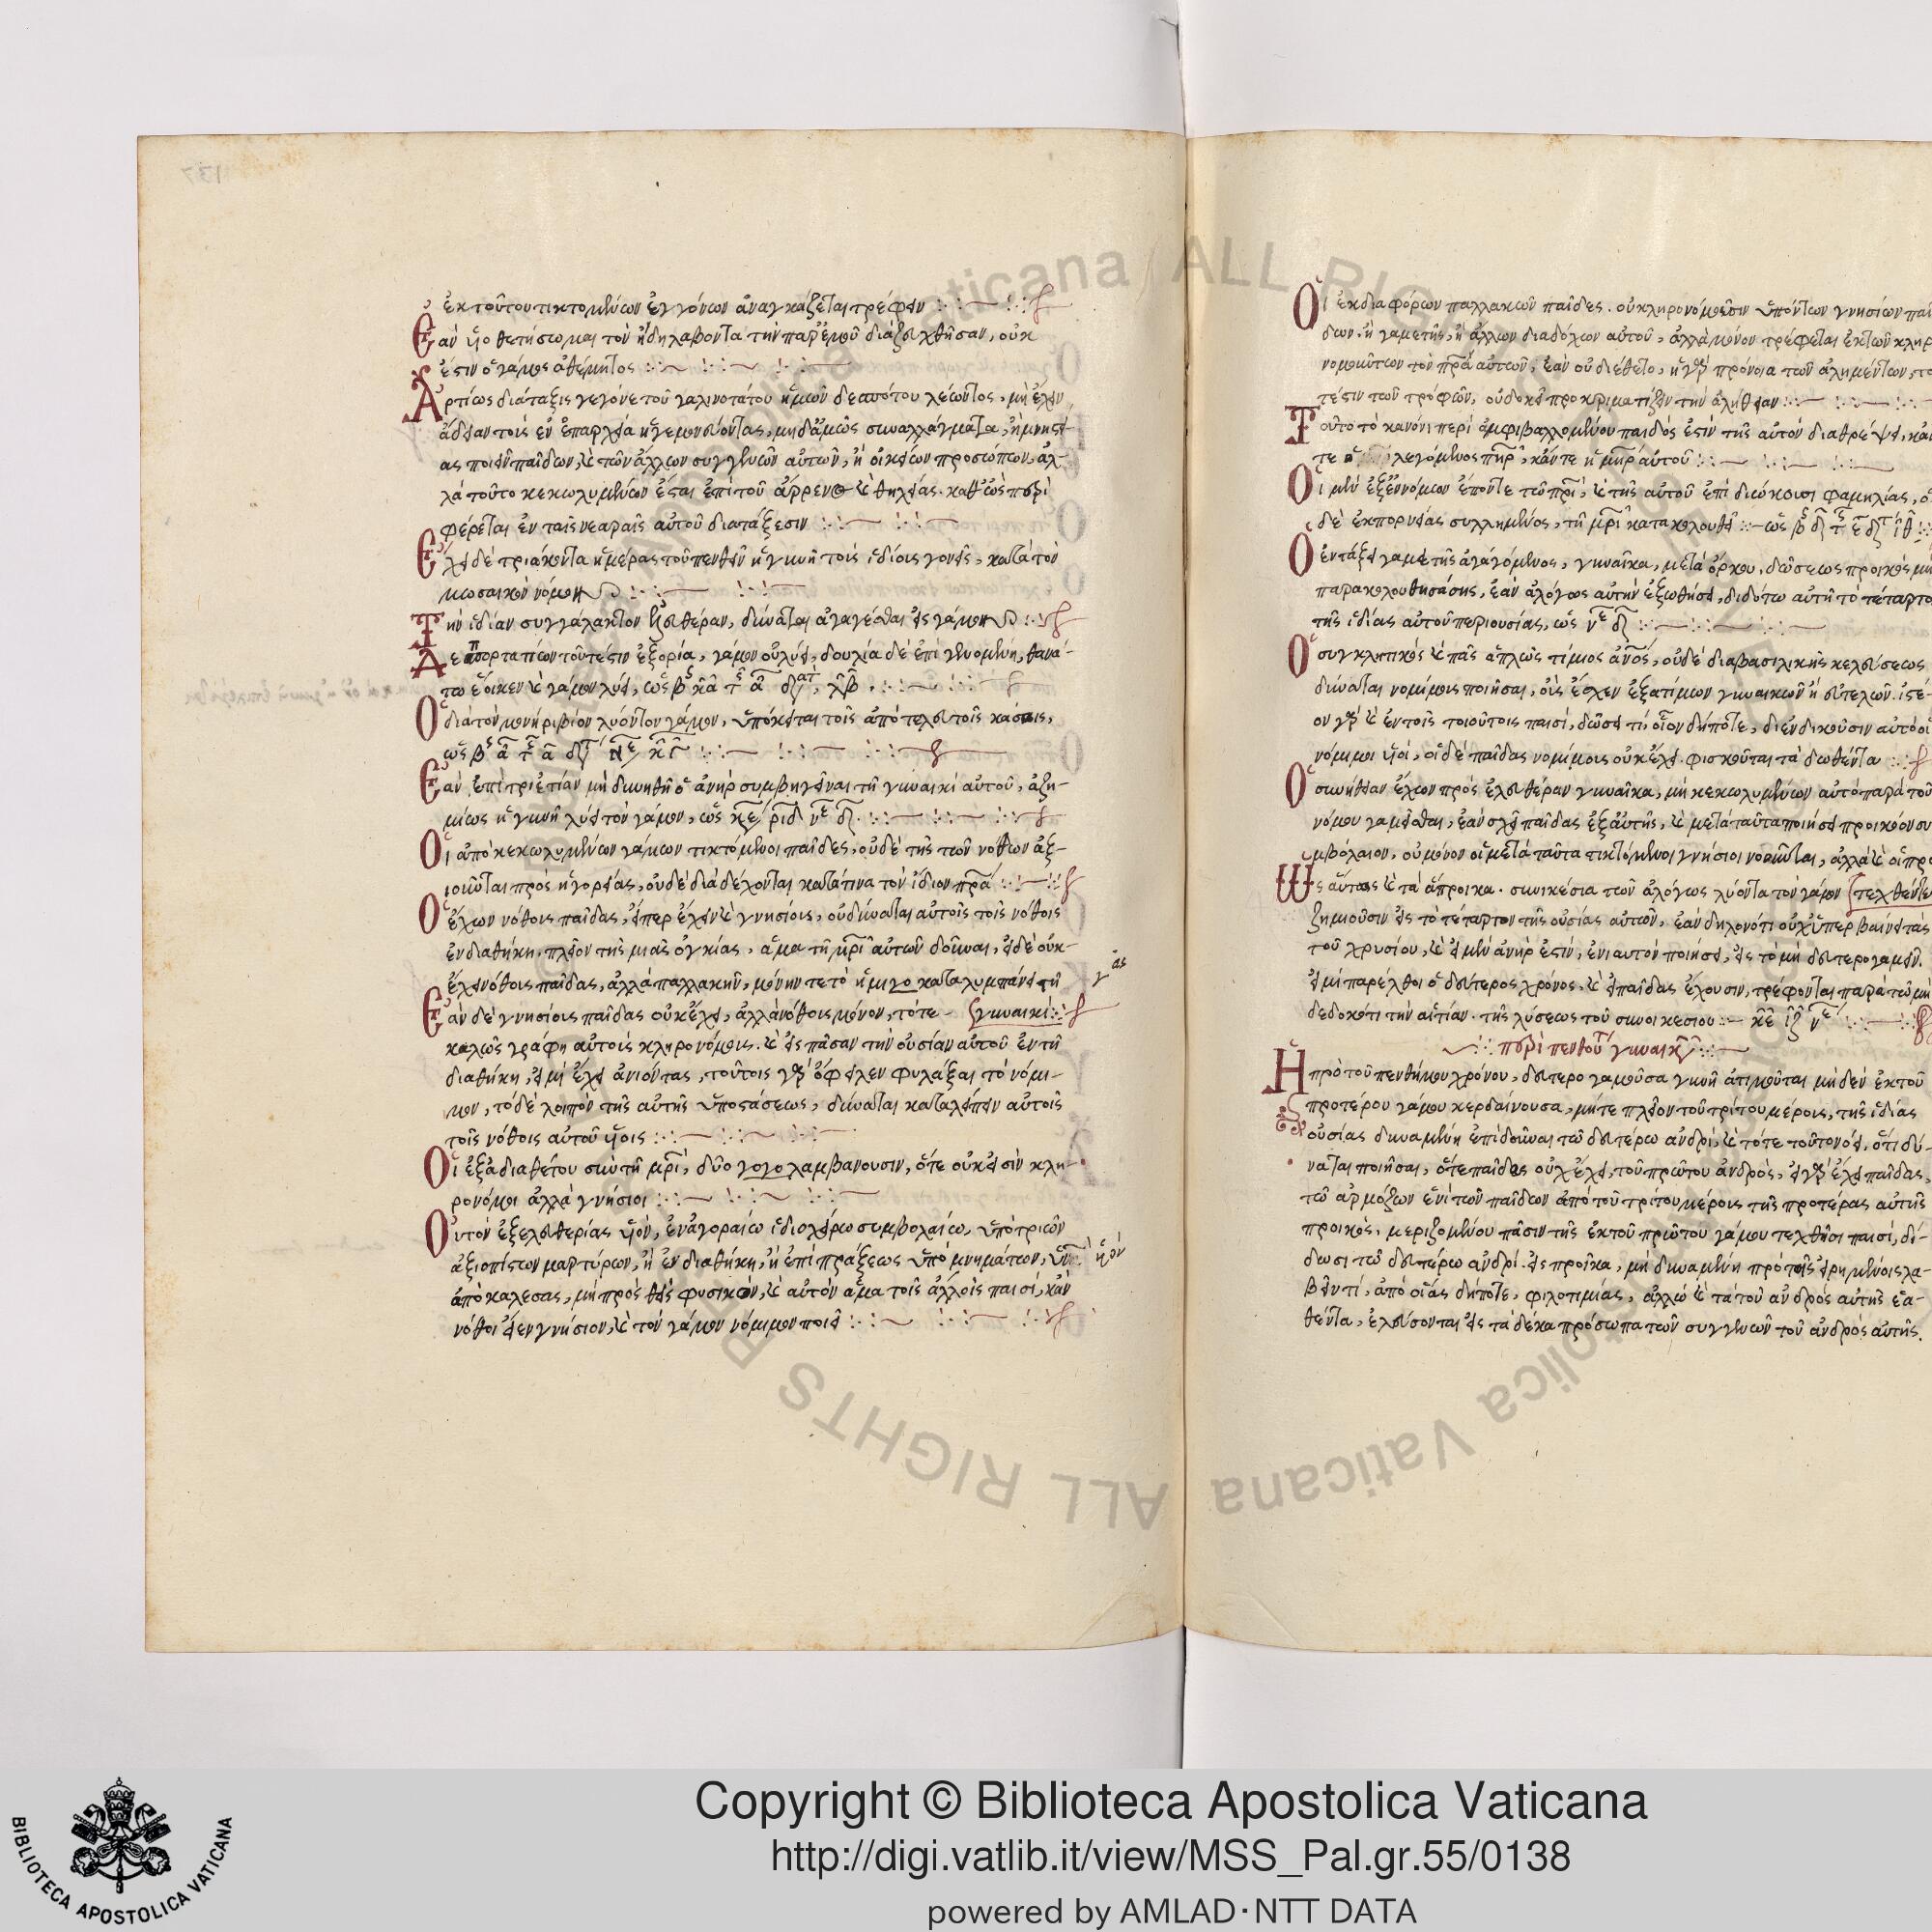 ἐκ τούτου τικτομένων ἐγγόνων ἀναγκάζεται τρέφειν
Ἐὰν υἱοθετήσωμαι τὸν ἤδη λαβόντα τὴν παρ' ἐμοῦ διαζευχθῆσαν, οὐκ
ἔστιν ὁ γάμος ἀθέμητος
Ἀρτίως διάταξις γέγονε τοῦ γαληνοτάτου ἡμῶν δεσπότου λέωντος, μὴ ἔχειν
ἄδειαν τοὺς ἐν ἐπαρχεία ἡγεμονεύοντας, μηδαμῶς συναλλάγματα, ἢ μνηστεί-
ας ποιεῖν παίδων, καὶ τῶν ἄλλων συγγενῶν αὐτῶν, ἢ οἰκείων προσώπων, ἀλ-
λὰ τοῦτο κεκωλυμένων ἔσται ἐπὶ τοῦ ἄρρενος καὶ θηλείας. καθὼς περι
φέρεται ἐν ταῖς νεαραῖς αὐτοῦ διατάξεσιν
Ἔχει δὲ τριάκοντα ἡμέρας τοῦ πενθεῖν ἡ γυνὴ τοῖς ἰδίοις γονεῖς, κατὰ τὸν
μωσαικὸν νόμον
Τὴν ἰδίαν συγγάλακτον ἐλευθέραν, δύναται ἀγαγέσθαι εἰς γάμον
τω ἔοικεν καὶ γάμον λύει, ὡς
Ὁ διὰ τὸν μονήρι βίον λύοντον γάμον, ὑπόκειται τοῖς ἀπὸ τελευτοῖς κάσοις,
Ἐὰν ἐπὶ τριετίαν μὴ δυνηθῆ ὁ ἀνὴρ συμβηγεῖναι τῆ γυναικὶ αὐτοῦ, ἀζη-
μίως ἡ γυνὴ λύει τὸν γάμον, ὡς
Οἱ ἀπὸ κεκωλυμένων γάμων τικτόμενοι παῖδες, οὐδὲ τῆς τῶν νόθων ἀξ-
ιοῦνται προσηγορίας, οὐδὲ διαδέχονται κατάτινα τὸν ἴδιον πρα
Ὁ ἔχων νόθους παῖδας, εἴπερ ἔχειν καὶ γνησίους, οὐ δύναται αὐτοῖς τοῖς νόθοις
ἐν διαθήκη πλεῖον τῆς μιᾶς ὀγκίας, ἅμα τῆ μρι αὐτῶν δοῦναι, εἰ δὲ οὐκ
ἔχει νόθους παῖδας, ἀλλὰ παλλακὴν, μόνην τετὸ ἥμισο καταλυμπάνει τῆ
γυναικί
Ἐὰν δὲ γνησίους παῖδας οὐκ ἔχει, ἀλλὰ νόθους μόνον, τότε
καλῶς γράφη αὐτοὺς κληρονόμους. καὶ εἰς πᾶσαν τὴν οὐσίαν αὐτοῦ ἐν τῆ
διαθήκη, εἰ μὴ ἔχει ἀνιόντας, τούτοις γὰρ ὀφείλεν φυλάξαι τὸ νόμι-
μον, τὸ δὲ λοιπὸν τῆς αὐτῆς ὑποστάσεως, δύναται καταλείπειν αὐτοῖς
τοῖς νόθοις αὐτοῦ υἱοῖς
Οἱ ἐξ ἀδιαθέτου σὺν τῆ μρι, δύο γογο λαμβάνουσιν, ὅτε οὐκ εἰσὶν κλη-
ρονόμοι ἀλλὰ γνήσιοι
Ὁ τὸν ἐξ ἐλευθερίας υἱὸν, ἐν ἀγοραίω ἰδιοχείρω συμβολαίω, ὑπὸ τριῶν
ἀξιοπίστων μαρτύρων, ἢ ἐν διαθήκη, ἢ ἐπὶ πράξεως ὑπομνημάτων,
ἀποκαλέσας, μὴ προσθεὶς φυσικὸν, καὶ αὐτὸν ἅμα τοῖς ἄλλοις παισὶ, κἂν
νόθοι εἶεν γνήσιον, καὶ τὸν γάμον νόμιμον ποιεῖ
Οἱ ἐκ διαφόρων παλλακῶν παῖδες. οὐ κληρονόμουσιν ὑπόντων γνησίων παί
δων. ἢ γαμετῆς, ἢ ἄλλων διαδόχων αὐτοῦ, ἀλλὰ μόνον τρέφεται ἐκ τῶν κληρ
νομούντων τὸν πρα αὐτῶν, ἐὰν οὐ διέθετο, ἡ γὰρ πρόνοια τῶν ἀλημέντων, το
τέστιν τῶν τροφῶν, οὐ δοκεῖ προκριματίζειν τὴν ἀλήθειαν
Τοῦτο τὸ κανόνι περὶ ἀμφιβαλλομένου παιδὸς ἐστὶν τῆς αὐτὸν διαθρέψει, κἄν
τε ὁ λεγόμενος πηρ, κἄντε ἡ μηρ αὐτοῦ
Οἱ μὲν ἐξ ἐννόμων ἕπονται τῶ πρι, καὶ τῆς αὐτοῦ ἐπὶ διώκουσι φαμηλίας, ὁ
δὲ ἐκ πορνείας συλλημένος, τῆ μρι κατακολουθεῖ
Ὁ ἐν τάξει γαμετῆς ἀγαγόμενος, γυναῖκα, μετὰ ὅρκου, δώσεως προικὸς μὴ
παρακολουθησάσης, ἐὰν ἀλόγως αὐτὴν ἐξωθήσει, διδότω αὐτῆ τὸ τέταρτο
τῆς ἰδίας αὐτοῦ περιουσίας, ὡς
Ὁ συγκλητικὸς καὶ πᾶς ἁπλῶς τίμιος ἀνος, οὐδὲ διὰ βασιλικῆς κελεύσεως
δύναται νομίμους ποιῆσαι, οὓς ἔσχεν ἐξ ἀτίμων γυναικῶν ἢ εὐτελῶν. ἰστέ-
ον γὰρ καὶ ἐν τοῖς τοιούτοις παισὶ, δώσει τί, οἷον δήποτε, διενδικοῦσιν αὐτὸ οἱ
νόμιμοι υἱοὶ, οἱ δὲ παῖδας νομίμους οὐκ ἔχει. φισκοῦται τὰ δωθέντα
Ὁ συνήθειαν ἔχων πρὸς ἐλευθέραν γυναῖκα, μὴ κεκωλυμένων αὐτὸ παρὰ τοῦ
νόμου γαμεῖσθαι, ἐὰν σχῆ παῖδας ἐξ αὐτῆς, καὶ μετὰ ταῦτα ποιήσει προικῶον συ
μβόλαιον, οὐ μόνον οἱ μετὰ ταῦτα τικτόμενοι γνήσιοι νοοῦνται, ἀλλὰ καὶ οἱ προ
Ὡσαύτως καὶ τὰ ἄπροικα. συνικέσια τῶν ἀλόγως λύοντα τὸν γάμον τεχθέντε
ζημιοῦσιν εἰς τὸ τέταρτον τῆς οὐσίας αὐτῶν, ἐὰν δηλονότι οὐχ ὑπερβαίνει τὰς
τοῦ χρυσίου, καὶ εἰ μὲν ἀνὴρ ἐστὶν, ἐνιαυτὸν ποιήσει, εἰς τὸ μὴ δευτερογαμεῖν.
εἰ μὴ παρέλθοι ὁ δεύτερος χρόνος, καὶ εἰ παῖδας ἔχουσιν, τρέφονται παρὰ τῶ μὴ
δεδοκότι τὴν αἰτίαν. τῆς λύσεως τοῦ συνοικεσίου
περὶ πενθου γυναικ
Ἡ πρὸ τοῦ πενθήμου χρόνου, δευτερογαμοῦσα γυνὴ ἀτιμοῦται μηδὲν ἐκ τοῦ
προτέρου γάμου κερδαίνουσα, μήτε πλεῖον τοῦ τρίτου μέρους, τῆς ἰδίας
οὐσίας δυναμένη ἐπιδοῦναι τῶ δευτέρω ἀνδρὶ, καὶ τότε τοῦτο νόει, ὅτι δύ-
ναται ποιῆσαι, ὅτε παῖδας οὐχ ἔχει, τοῦ πρώτου ἀνδρὸς, εἰ γὰρ ἔχει παῖδας,
τῶ ἁρμόζων ἑνὶ τῶν παίδων ἀπὸ τοῦ τρίτου μέρους τῆς προτέρας αὐτῆς
προικὸς. μεριζομένου πᾶσιν τῆς ἐκ τοῦ πρώτου γάμου τεχθῆσι παισὶ, δί-
δωσι τῶ δευτέρω ἀνδρὶ. εἰς προῖκα, μὴ δυναμένη πρὸ τοῖς εἰρημένοις λα-
βεῖν τί, ἀπὸ οἵας δήποτε, φιλοτιμίας, ἀλλὼ καὶ τὰ τοῦ ἀνδρὸς αὐτῆς ἐα-
θέντα, ἐλεύσονται εἰς τὰ δέκα πρόσωπα τῶν συγγενῶν τοῦ ἀνδρὸς αὐτῆς.
Copyright © Biblioteca Apostolica Vaticana
http://digi.vatlib.it/view/MSS_Pal.gr.55/0138
powered by AMLAD·NTT DATA
BIBLIOTECA APOSTOLICA VATICANA